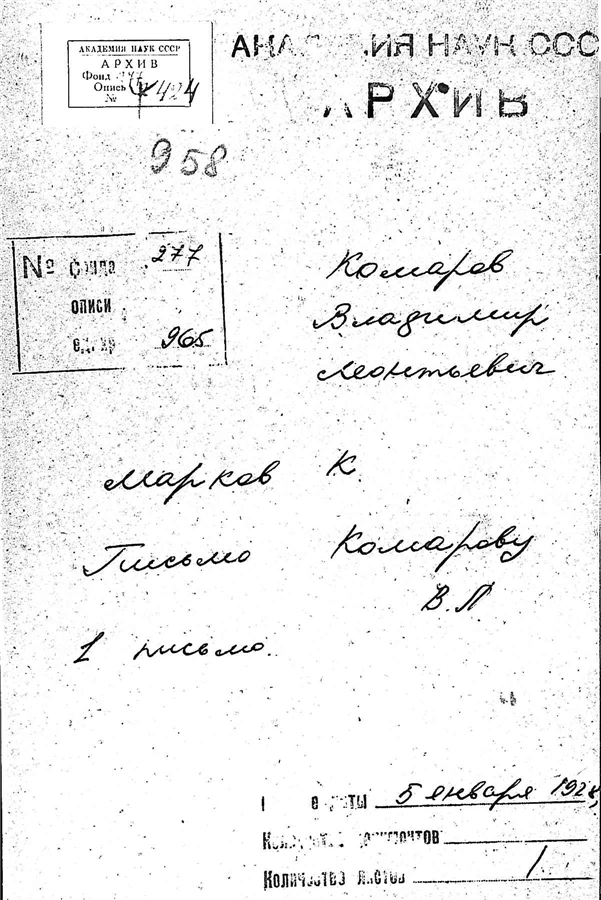 АКАДЕМИЯ НАУК СССР
АРХИВ
Фонд 277
Опись
№ 424
НАУК ССС
АРХИВ
958
№ фонда 277
описи
ед. хр 965
Комаров
Владимир
Леонтьевич
Марков К.
Письмо Комарову
В.Л
1 письмо.
даты 5 января
Количество документов
Количество листов 1